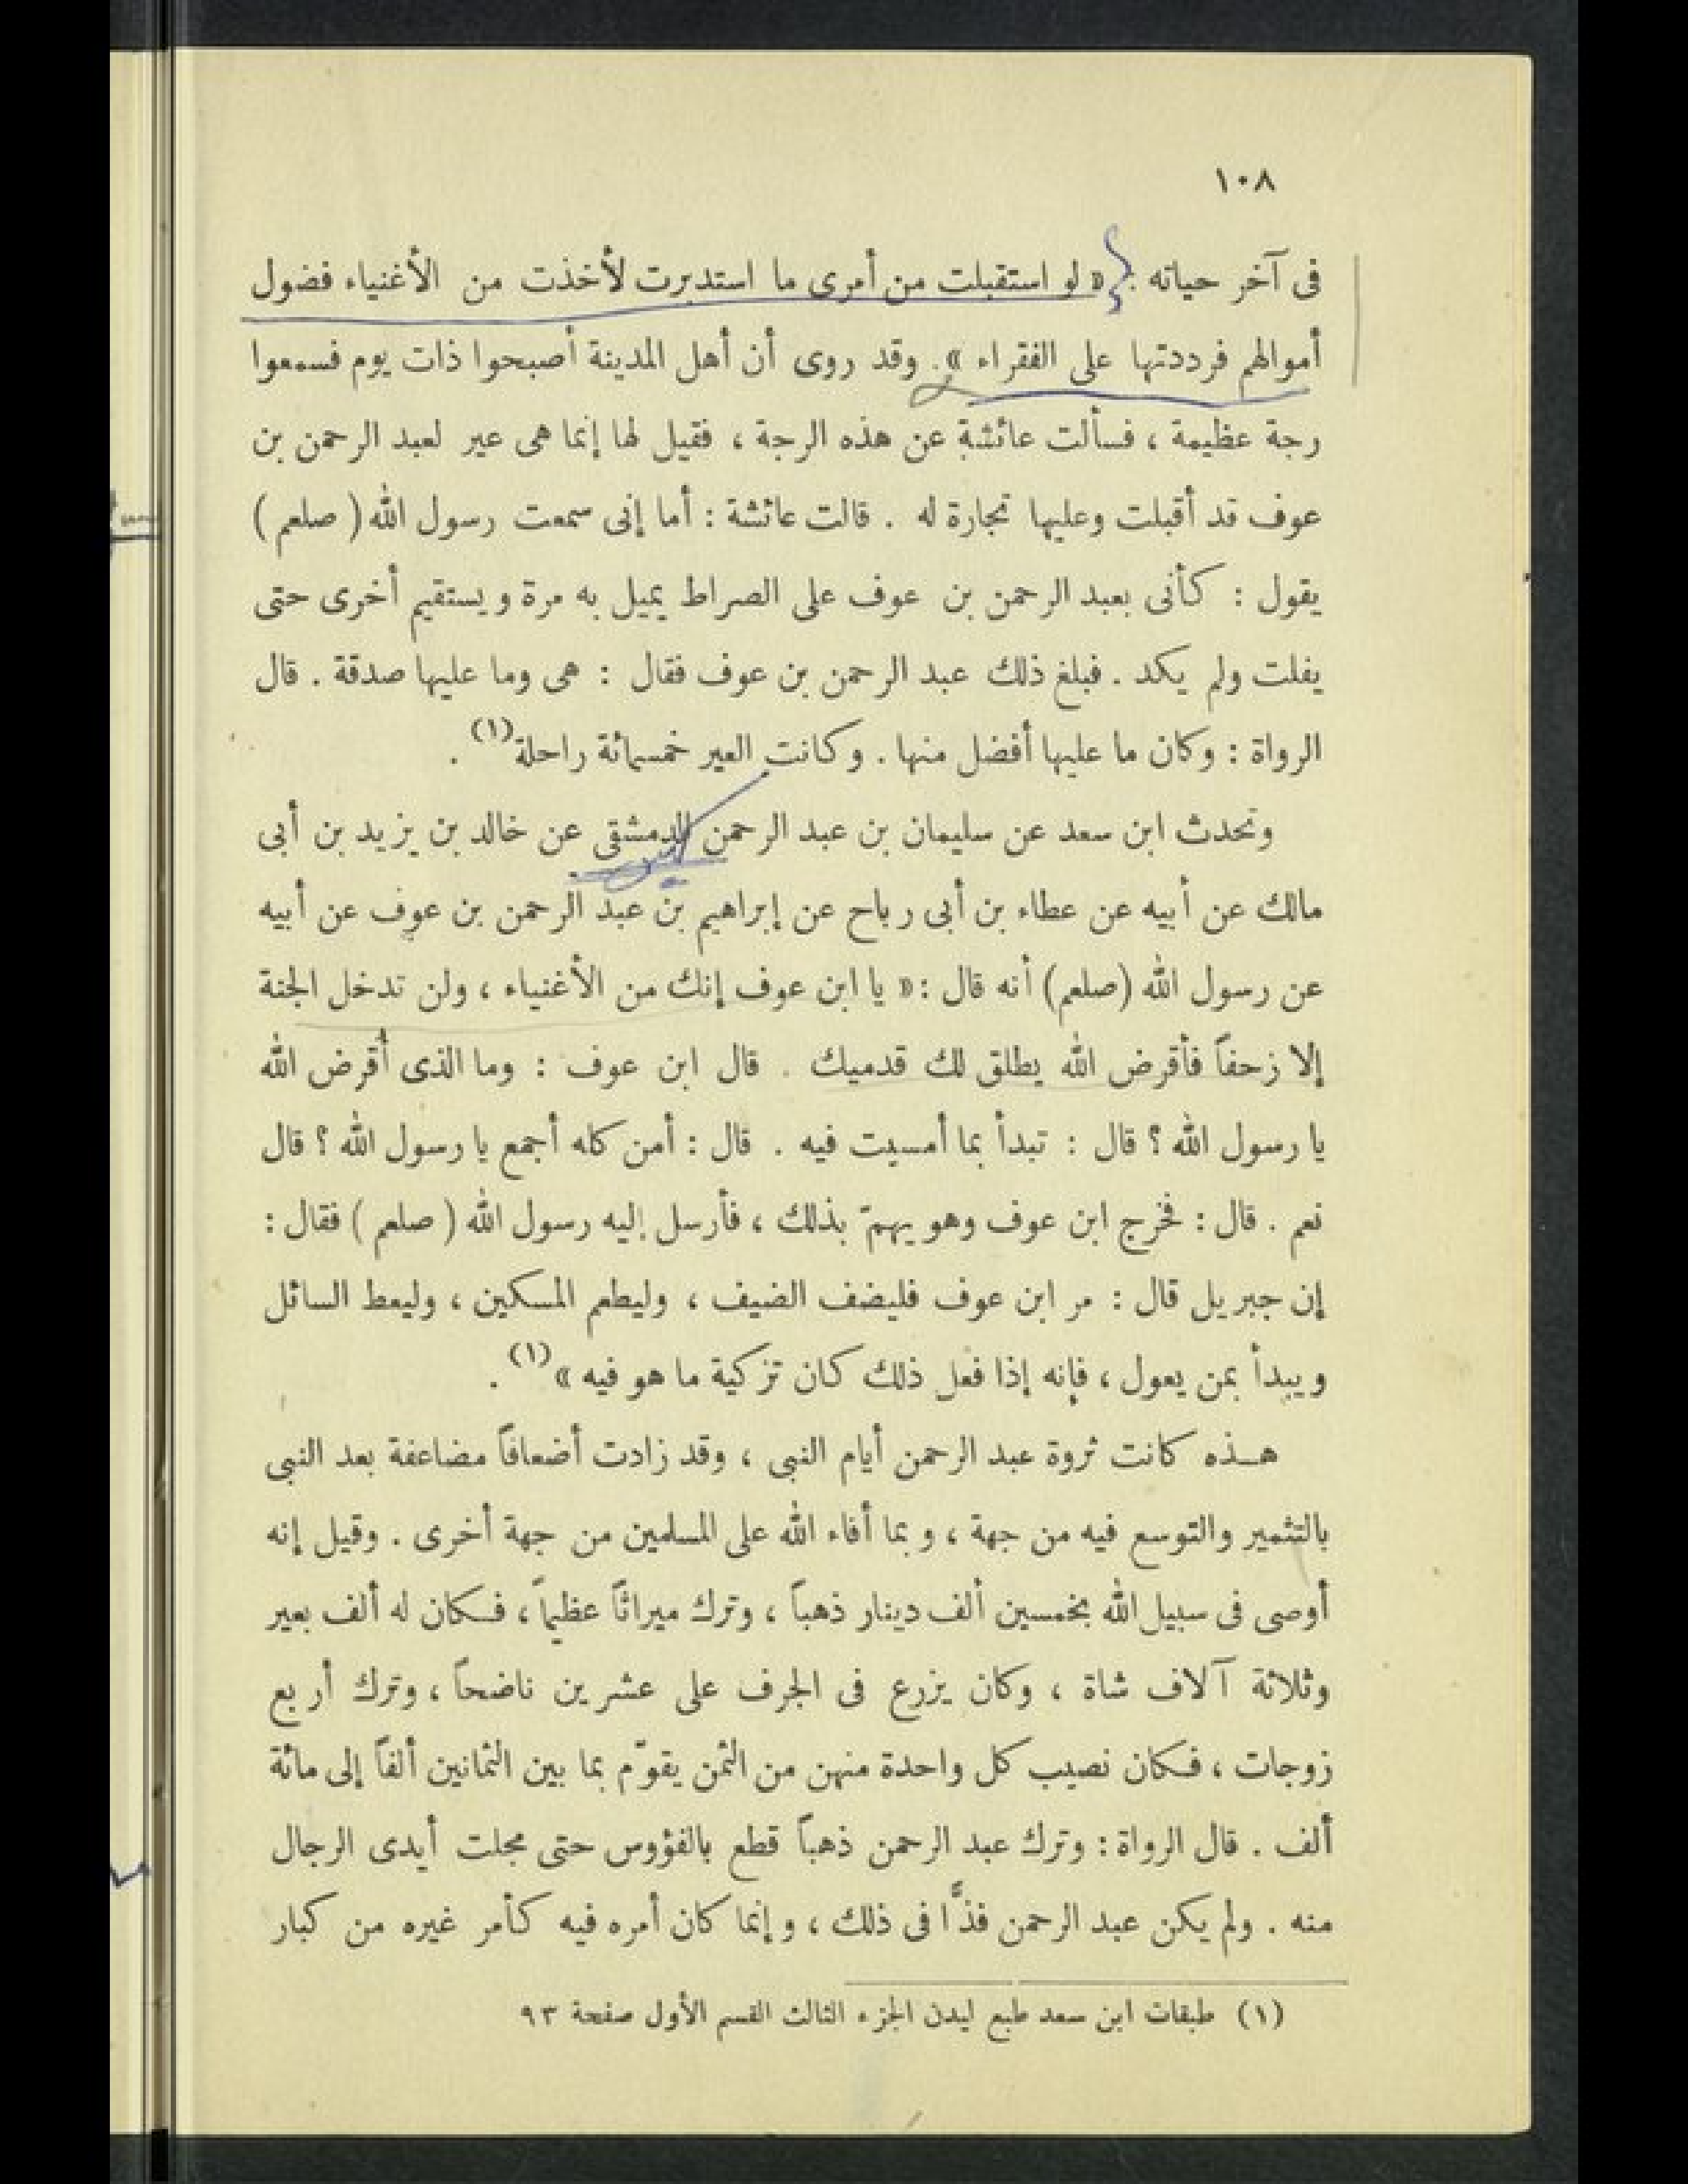 ١٠٨
فى آخر حياته : « لو استقبلت من أمرى ما استدبرت لأخذت من الأغنياء فضول
أموالهم فرددتها على الفقراء ». وقد روى أن أهل المدينة أصبحوا ذات يوم فسمعوا
رجة عظيمة ، فسألت عائشة عن هذه الرجة ، فقيل لها إنما هى عير لعبد الرحمن بن
عوف قد أقبلت وعليها تجارة له . قالت عائشة : أما إنى سمعت رسول الله ( صلعم )
يقول : كأنى بعبد الرحمن بن عوف على الصراط يميل به مرة ويستقيم أخرى حتى
يفلت ولم يكد . فبلغ ذلك عبد الرحمن بن عوف فقال : هى وما عليها صدقة . قال
الرواة : وكان ما عليها أفضل منها . وكانت العير خمسمائة راحلة (١) .
وتحدث ابن سعد عن سليمان بن عبد الرحمن الدمشقى عن خالد بن يزيد بن أبى
مالك عن أبيه عن عطاء بن أبى رباح عن إبراهيم بن عبد الرحمن بن عوف عن أبيه
عن رسول الله (صلعم) أنه قال : « يا ابن عوف إنك من الأغنياء ، ولن تدخل الجنة
إلا زحفاً فأقرض الله يطلق لك قدميك . قال ابن عوف : وما الذى أقرض الله
يا رسول الله ؟ قال : تبدأ بما أمسيت فيه . قال : أمن كله أجمع يا رسول الله ؟ قال
نعم . قال : فخرج ابن عوف وهو يهمّ بذلك ، فأرسل إليه رسول الله ( صلعم ) فقال :
إن جبريل قال : مر ابن عوف فليضف الضيف ، وليطعم المسكين ، وليعط السائل
ويبدأ بمن يعول ، فإنه إذا فعل ذلك كان تزكية ما هو فيه » (١) .
هذه كانت ثروة عبد الرحمن أيام النبى ، وقد زادت أضعافاً مضاعفة بعد النبى
بالتثمير والتوسع فيه من جهة ، وبما أفاء الله على المسلمين من جهة أخرى . وقيل إنه
أوصى فى سبيل الله بخمسين ألف دينار ذهباً ، وترك ميراثاً عظيماً ، فكان له ألف بعير
وثلاثة آلاف شاة ، وكان يزرع فى الجرف على عشرين ناضحاً ، وترك أربع
زوجات ، فكان نصيب كل واحدة منهن من الثمن يقوّم بما بين الثمانين ألفاً إلى مائة
ألف . قال الرواة : وترك عبد الرحمن ذهباً قطع بالفؤوس حتى مجلت أيدى الرجال
منه . ولم يكن عبد الرحمن فذًّا فى ذلك ، وإنما كان أمره فيه كأمر غيره من كبار
(١) طبقات ابن سعد طبع ليدن الجزء الثالث القسم الأول صفحة ٩٣